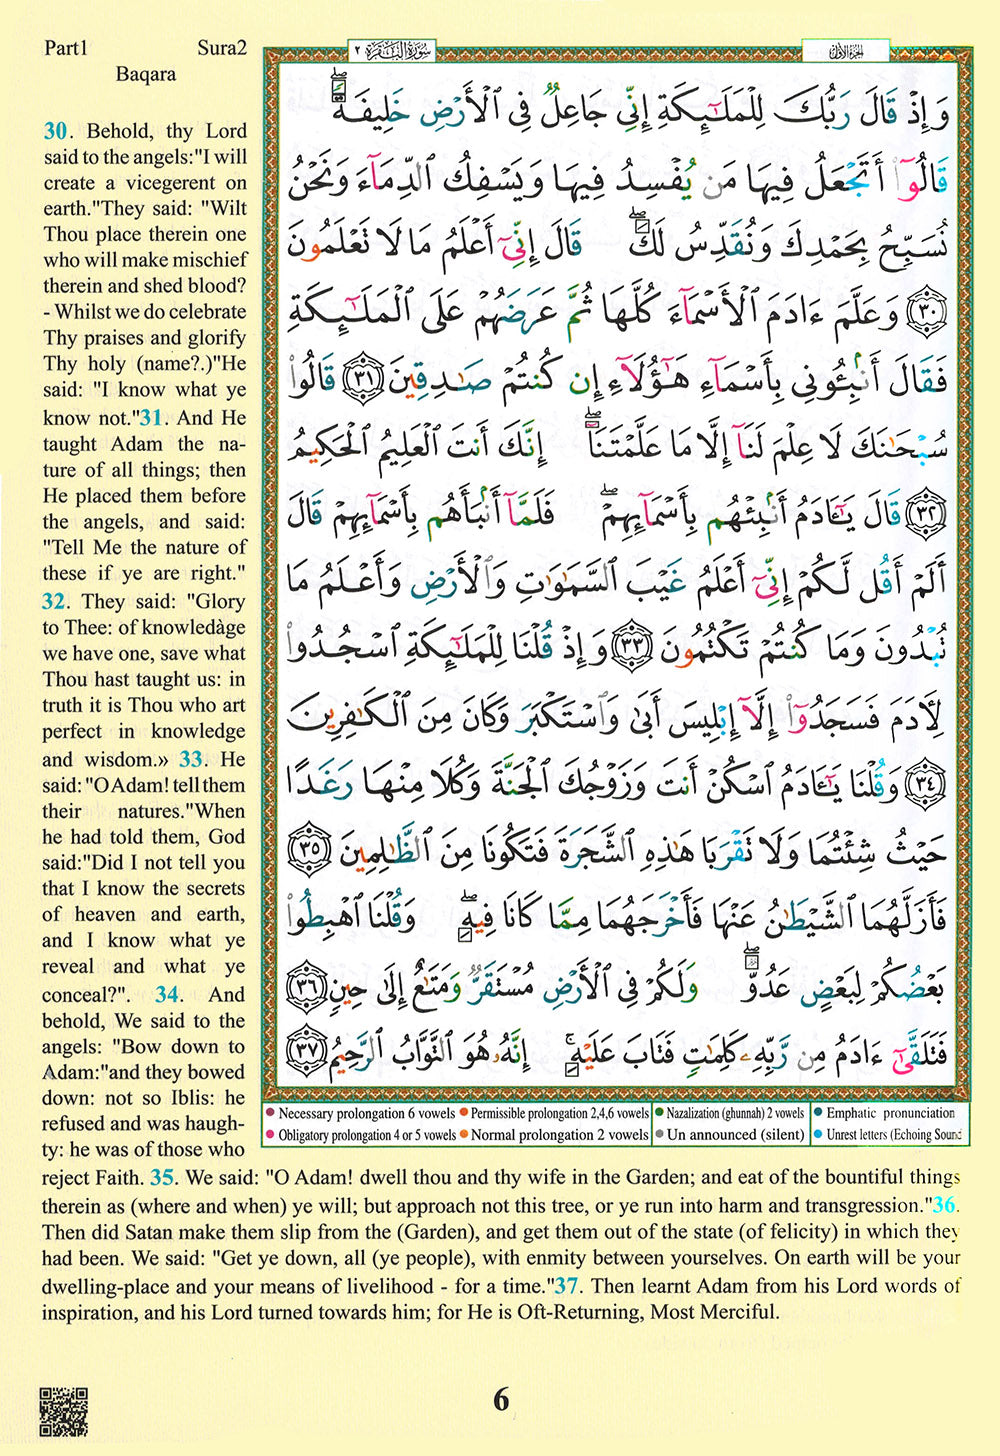 Part1 Sura2
Baqara
سورة البقرة ٢
الجزء الأول
وَإِذْ قَالَ رَبُّكَ لِلْمَلَـٰٓئِكَةِ إِنِّى جَاعِلٌ فِى ٱلْأَرْضِ خَلِيفَةً ۖ
قَالُوٓا۟ أَتَجْعَلُ فِيهَا مَن يُفْسِدُ فِيهَا وَيَسْفِكُ ٱلدِّمَآءَ وَنَحْنُ
نُسَبِّحُ بِحَمْدِكَ وَنُقَدِّسُ لَكَ ۖ قَالَ إِنِّىٓ أَعْلَمُ مَا لَا تَعْلَمُونَ
﴿٣٠﴾ وَعَلَّمَ ءَادَمَ ٱلْأَسْمَآءَ كُلَّهَا ثُمَّ عَرَضَهُمْ عَلَى ٱلْمَلَـٰٓئِكَةِ
فَقَالَ أَنۢبِـُٔونِى بِأَسْمَآءِ هَـٰٓؤُلَآءِ إِن كُنتُمْ صَـٰدِقِينَ ﴿٣١﴾ قَالُوا۟
سُبْحَـٰنَكَ لَا عِلْمَ لَنَآ إِلَّا مَا عَلَّمْتَنَآ ۖ إِنَّكَ أَنتَ ٱلْعَلِيمُ ٱلْحَكِيمُ
﴿٣٢﴾ قَالَ يَـٰٓـَٔادَمُ أَنۢبِئْهُم بِأَسْمَآئِهِمْ ۖ فَلَمَّآ أَنۢبَأَهُم بِأَسْمَآئِهِمْ قَالَ
أَلَمْ أَقُل لَّكُمْ إِنِّىٓ أَعْلَمُ غَيْبَ ٱلسَّمَـٰوَٰتِ وَٱلْأَرْضِ وَأَعْلَمُ مَا
تُبْدُونَ وَمَا كُنتُمْ تَكْتُمُونَ ﴿٣٣﴾ وَإِذْ قُلْنَا لِلْمَلَـٰٓئِكَةِ ٱسْجُدُوا۟
لِـَٔادَمَ فَسَجَدُوٓا۟ إِلَّآ إِبْلِيسَ أَبَىٰ وَٱسْتَكْبَرَ وَكَانَ مِنَ ٱلْكَـٰفِرِينَ
﴿٣٤﴾ وَقُلْنَا يَـٰٓـَٔادَمُ ٱسْكُنْ أَنتَ وَزَوْجُكَ ٱلْجَنَّةَ وَكُلَا مِنْهَا رَغَدًا
حَيْثُ شِئْتُمَا وَلَا تَقْرَبَا هَـٰذِهِ ٱلشَّجَرَةَ فَتَكُونَا مِنَ ٱلظَّـٰلِمِينَ ﴿٣٥﴾
فَأَزَلَّهُمَا ٱلشَّيْطَـٰنُ عَنْهَا فَأَخْرَجَهُمَا مِمَّا كَانَا فِيهِ ۖ وَقُلْنَا ٱهْبِطُوا۟
بَعْضُكُمْ لِبَعْضٍ عَدُوٌّ ۖ وَلَكُمْ فِى ٱلْأَرْضِ مُسْتَقَرٌّ وَمَتَـٰعٌ إِلَىٰ حِينٍ ﴿٣٦﴾
فَتَلَقَّىٰٓ ءَادَمُ مِن رَّبِّهِۦ كَلِمَـٰتٍ فَتَابَ عَلَيْهِ ۚ إِنَّهُۥ هُوَ ٱلتَّوَّابُ ٱلرَّحِيمُ ﴿٣٧﴾
● Necessary prolongation 6 vowels ● Permissible prolongation 2,4,6 vowels ● Nazalization (ghunnah) 2 vowels ● Emphatic pronunciation
● Obligatory prolongation 4 or 5 vowels ● Normal prolongation 2 vowels ● Un announced (silent) ● Unrest letters (Echoing Sound
30. Behold, thy Lord
said to the angels:"I will
create a vicegerent on
earth."They said: "Wilt
Thou place therein one
who will make mischief
therein and shed blood?
- Whilst we do celebrate
Thy praises and glorify
Thy holy (name?.)"He
said: "I know what ye
know not."31. And He
taught Adam the na-
ture of all things; then
He placed them before
the angels, and said:
"Tell Me the nature of
these if ye are right."
32. They said: "Glory
to Thee: of knowledàge
we have one, save what
Thou hast taught us: in
truth it is Thou who art
perfect in knowledge
and wisdom.» 33. He
said: "O Adam! tell them
their natures."When
he had told them, God
said:"Did I not tell you
that I know the secrets
of heaven and earth,
and I know what ye
reveal and what ye
conceal?". 34. And
behold, We said to the
angels: "Bow down to
Adam:"and they bowed
down: not so Iblis: he
refused and was haugh-
ty: he was of those who
reject Faith. 35. We said: "O Adam! dwell thou and thy wife in the Garden; and eat of the bountiful things
therein as (where and when) ye will; but approach not this tree, or ye run into harm and transgression."36.
Then did Satan make them slip from the (Garden), and get them out of the state (of felicity) in which they
had been. We said: "Get ye down, all (ye people), with enmity between yourselves. On earth will be your
dwelling-place and your means of livelihood - for a time."37. Then learnt Adam from his Lord words of
inspiration, and his Lord turned towards him; for He is Oft-Returning, Most Merciful.
6